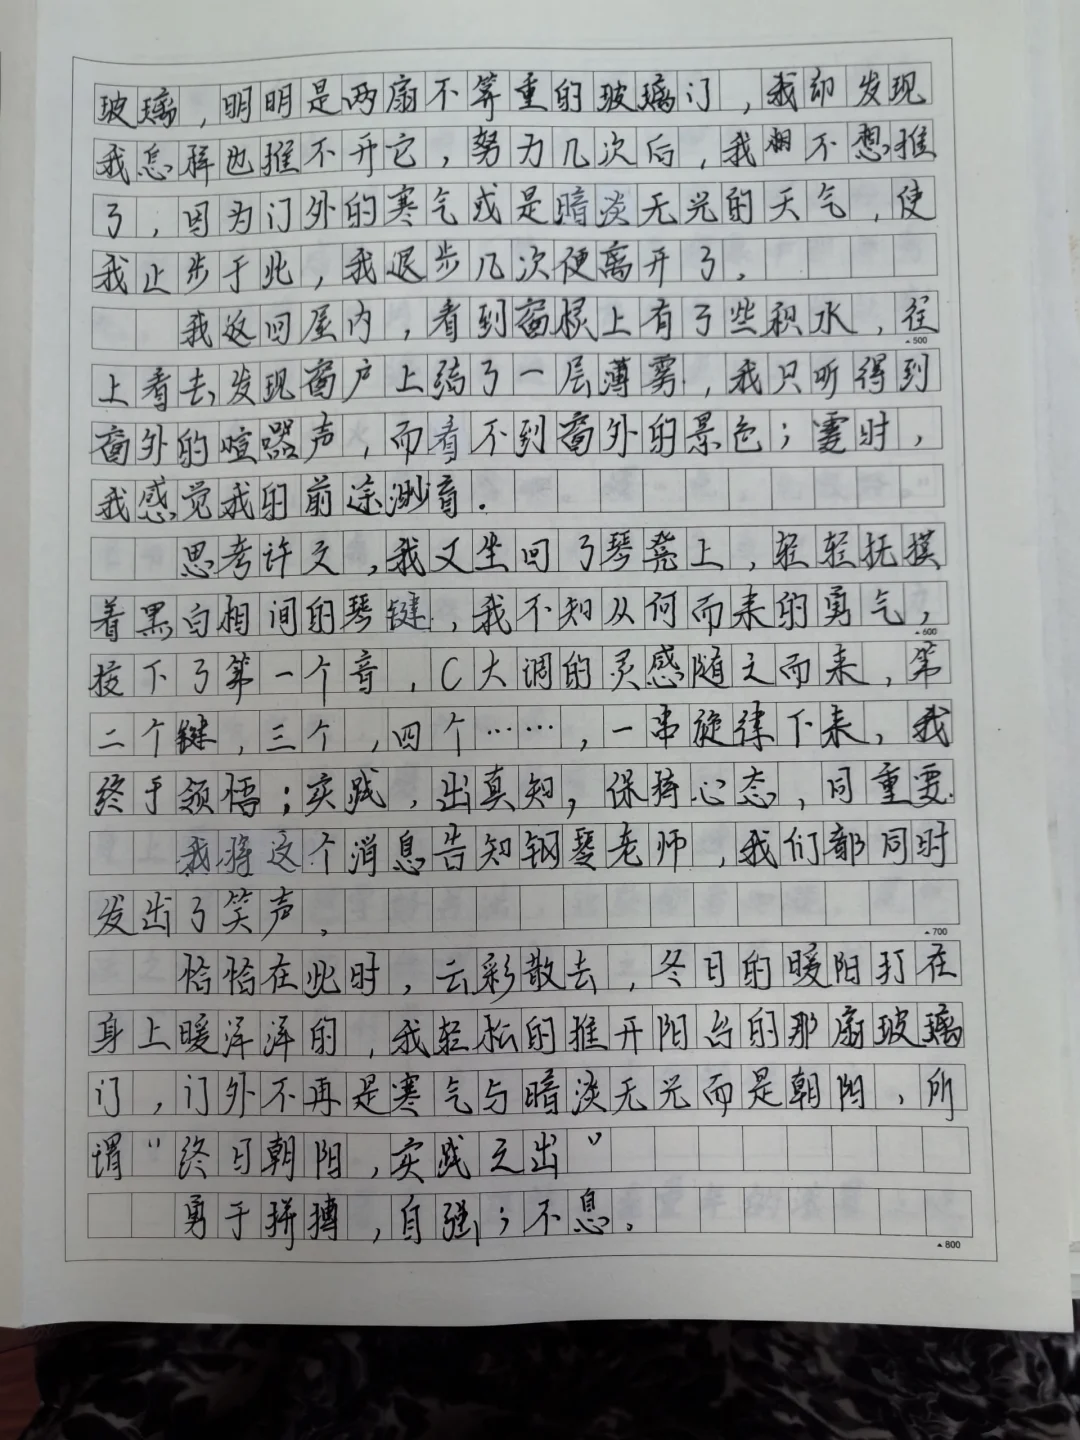 玻璃，明明是两扇不等重的玻璃门，我却发现
我怎样也推不开它，努力几次后，我相不想推
了，因为门外的寒气或是暗淡无光的天气，使
我止步于此，我退步几次便离开了。
我返回屋内，看到窗框上有了些积水，往
上看去，发现窗户上结了一层薄雾，我只听得到
窗外的喧嚣声，而看不到窗外的景色；霎时，
我感觉我的前途渺音。
思考许久，我又坐回了琴凳上，轻轻抚摸
着黑白相间的琴键，我不知从何而来的勇气，
按下了第一个音，C大调的灵感随之而来，第
二个键，三个，四个……，一串旋律下来，我
终于领悟；实践，出真知，保持心态，同重要
我将这个消息告知钢琴老师，我们都同时
发出了笑声。
恰恰在此时，云彩散去，冬日的暖阳打在
身上暖洋洋的，我轻松的推开阳台的那扇玻璃
门，门外不再是寒气与暗淡无光而是朝阳，所
谓“终日朝阳，实践之出”
勇于拼搏，自强；不息。
500
600
700
800